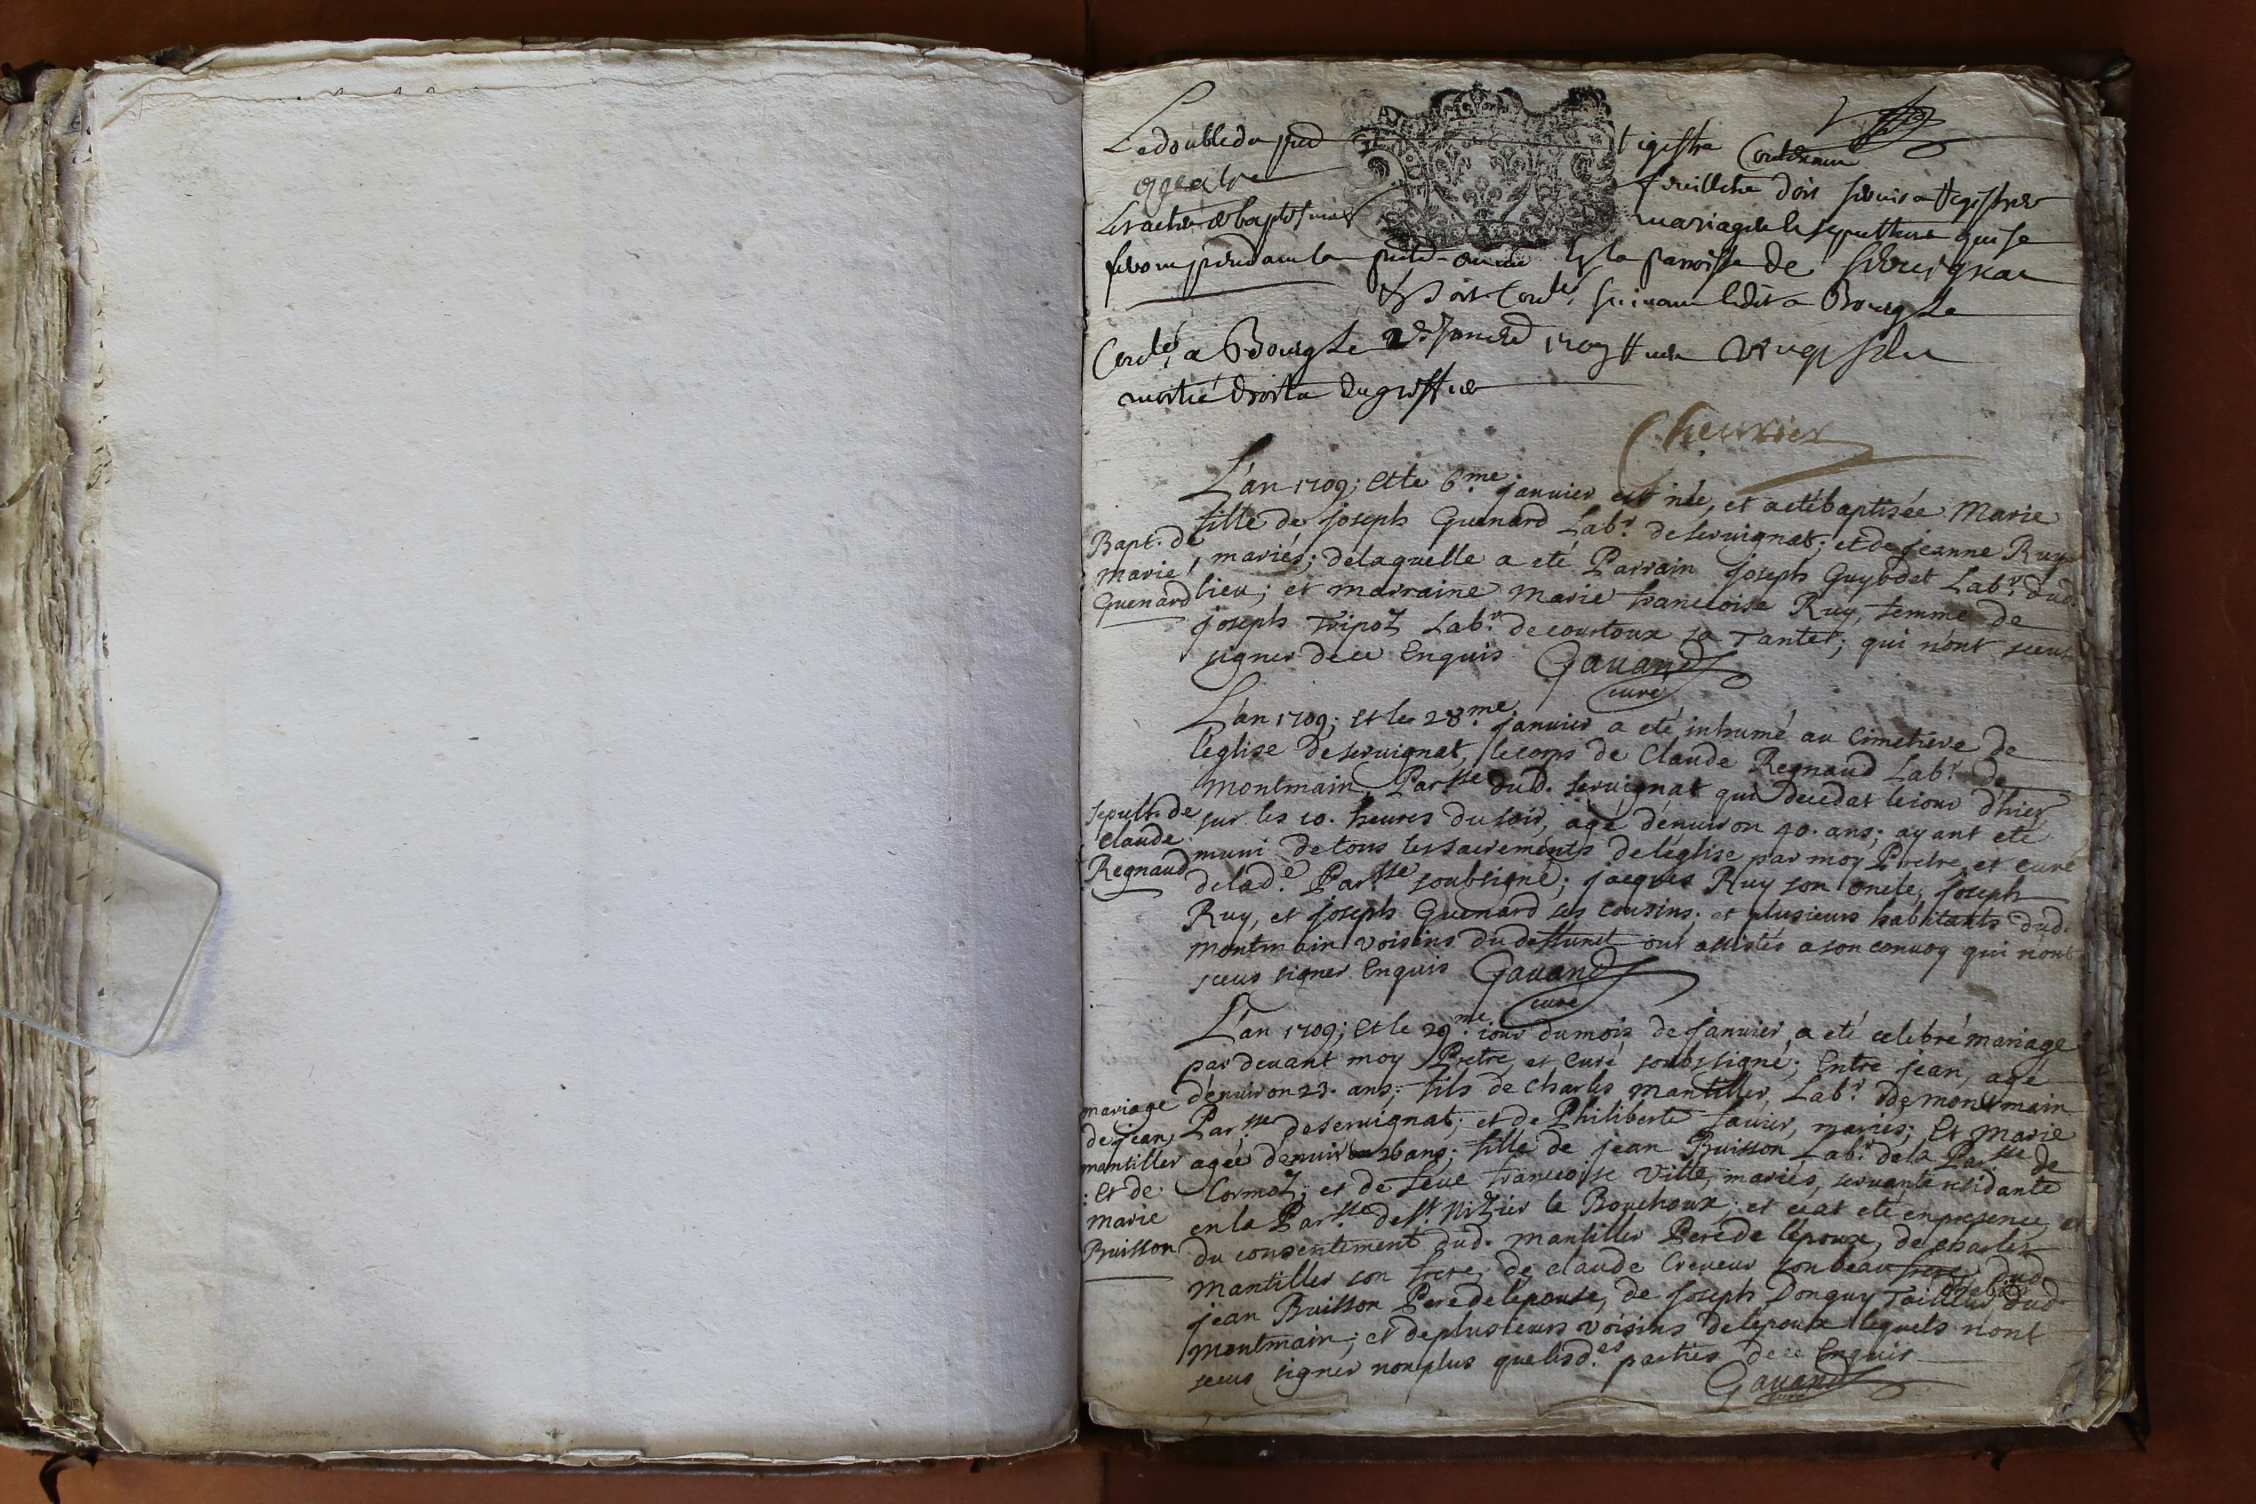 Le double du registre Contenant
quatre feuillets dois servir a Registrer
Les actes de baptesmes mariages et sepulture qui se
feron pendant la année En la paroisse de servignat
Cotté a Bourg Le 2e Janvier 1709
moitié droits du greffier
Cheurier
L'an 1709; et le 6.me janvier est née, et a eté baptisée Marie
fille de joseph Guenard Lab.r de servignat; et de jeanne Ruy
mariés; de laquelle a eté Parrain joseph Guybdet Lab.r dud.
lieu; et marraine Marie francoise Ruy, femme de
joseph Tripoz Lab.r de courtoux sa Tante; qui n'ont sceus
signer de ce Enquis Gavand
curé
Bapt. de
marie
Guenard
L'an 1709; et le 28.me janvier a eté inhumé au Cimetiére de
l'eglise de servignat, le corps de Claude Regnaud Lab.r de
montmain, Par.sse dud. servignat qui decedat le iour d'hier
sur les 10. heures du soir, agé d'enuiron 40. ans; ayant eté
muni de tous les sacrements de l'église par moy Pretre, et curé
de lad.e Par.sse soubsigné; jacques Ruy son oncle, joseph
Ruy, et joseph Guenard ses cousins. et plusieurs habitants dud.
montmain voisins du deffunct ont assistés a son convoy qui n'ont
sceus signer Enquis Gavand
curé
Sepult. de
Claude
Regnaud
L'an 1709; et le 29.me iour du mois de janvier, a eté celebré mariage
par devant moy Pretre, et curé soubssigné; Entre jean, agé
d'enuiron 23. ans; fils de Charles mantiller, Lab.r de montmain
Par.sse de servignat; et de Philiberte mariés; Et marie
agée d'enuiron 26 ans; fille de jean Buisson Lab.r de la Par.sse de
Cormoz; et de feue francoise Ville, mariés, servante residante
en la Par.sse de s.t Nizier le Bouchoux; et ce at eté en presence, et
du consentement dud. mantiller Pere de l'epoux, de charles
mantiller son frere, de claude Creveur son beau frere, dud.
jean Buisson Pere de l'epouse, de joseph Donguy Tailleur dud.
montmain; et de plusieurs voisins de l'epoux lequels n'ont
sceus signer non plus que lesd.es parties de ce Enquis
Gavand
curé
mariage
de jean
mantiller
: et de
marie
Buisson